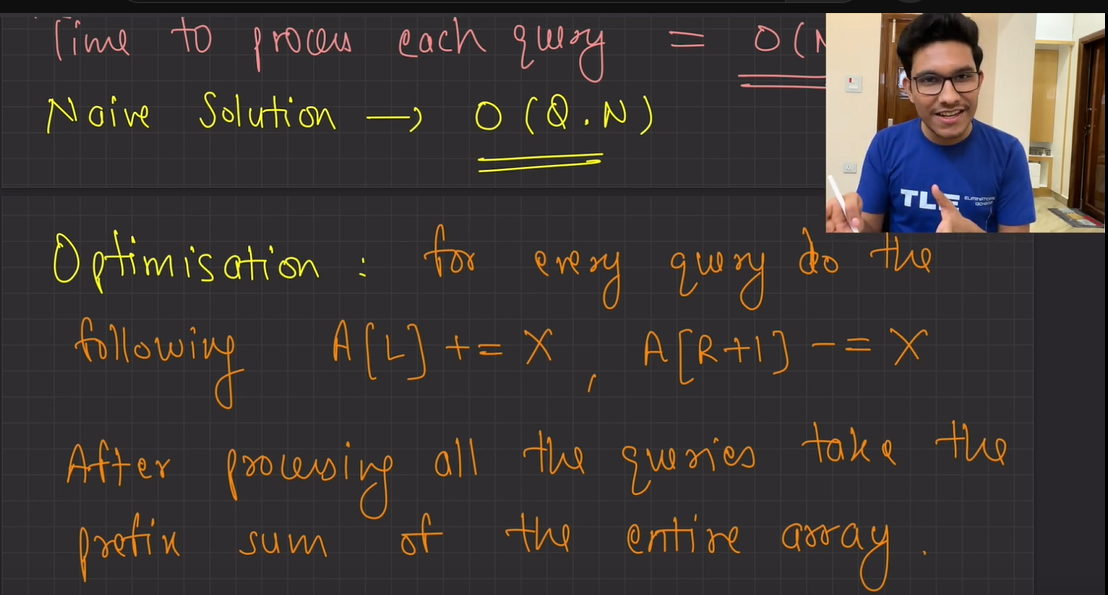 Time to process each query = O(N
Naive Solution → O(Q.N)
TLE ELIMINATORS
Optimisation : for every query do the
following A[L] += X , A[R+1] -= X
After processing all the queries take the
prefix sum of the entire array.